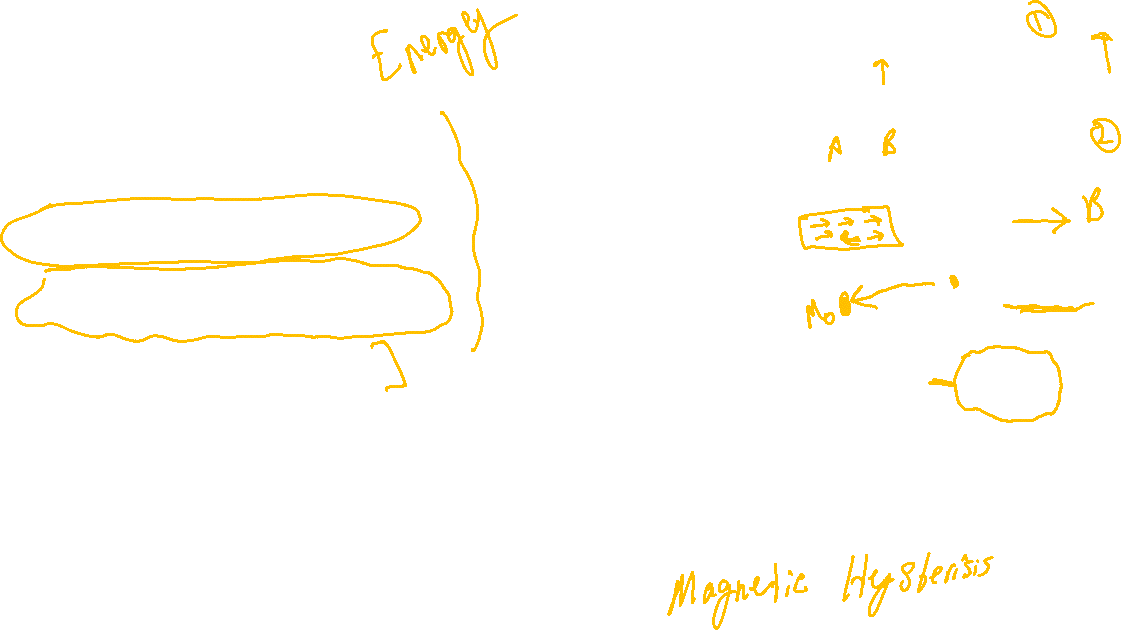 Energy
①
A B
②
B
M₀
Magnetic Hysterisis